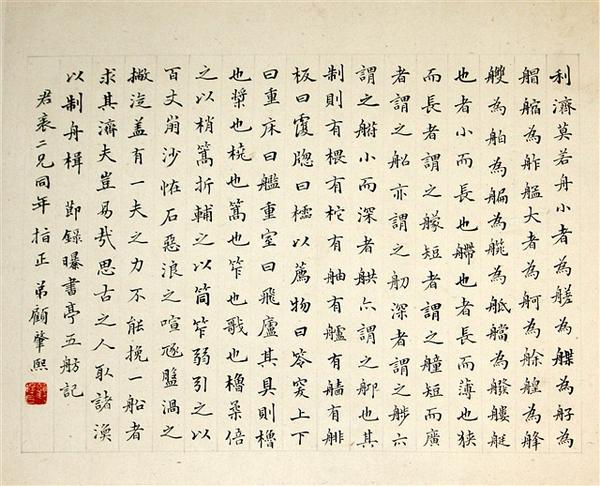 利濟莫若舟小者為艖為艓為為
艒為舴艋大者為舸為艅艎為艂
艭為舶為艑為為艡為艛艇
也者小而長也艜也者長而薄也狹
而長者謂之艨短者謂之艟短而廣
者謂之亦謂之舠深者謂之六
謂之小而深者六謂之也其
制則有椳有柁有舳有艫有艢有
板曰覆曰以薦物曰笭窔上下
曰重床曰艦重室曰飛廬其具則櫓
也槳也橈也篙也笮也戙也櫓槳倍
之以梢篙折輔之以筒笮弱引之以
百丈崩沙怪石惡浪之喧豗盤渦之
撇漩蓋有一夫之力不能挽一船者
求其濟夫豈易哉思古之人取諸渙
以制舟楫 節錄曝書亭五舫記
君表二兄同年指正 弟顧肇熙